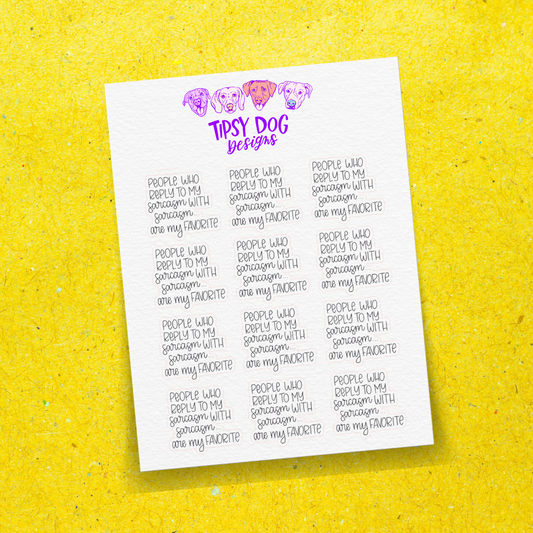 TIPSY DOG
Designs
PEOPLE WHO
REPLY TO MY
sarcasm WITH
sarcasm
are my FAVORITE
PEOPLE WHO
REPLY TO MY
sarcasm WITH
sarcasm
are my FAVORITE
PEOPLE WHO
REPLY TO MY
sarcasm WITH
sarcasm
are my FAVORITE
PEOPLE WHO
REPLY TO MY
sarcasm WITH
sarcasm
are my FAVORITE
PEOPLE WHO
REPLY TO MY
sarcasm WITH
sarcasm
are my FAVORITE
PEOPLE WHO
REPLY TO MY
sarcasm WITH
sarcasm
are my FAVORITE
PEOPLE WHO
REPLY TO MY
sarcasm WITH
sarcasm
are my FAVORITE
PEOPLE WHO
REPLY TO MY
sarcasm WITH
sarcasm
are my FAVORITE
PEOPLE WHO
REPLY TO MY
sarcasm WITH
sarcasm
are my FAVORITE
PEOPLE WHO
REPLY TO MY
sarcasm WITH
sarcasm
are my FAVORITE
PEOPLE WHO
REPLY TO MY
sarcasm WITH
sarcasm
are my FAVORITE
PEOPLE WHO
REPLY TO MY
sarcasm WITH
sarcasm
are my FAVORITE